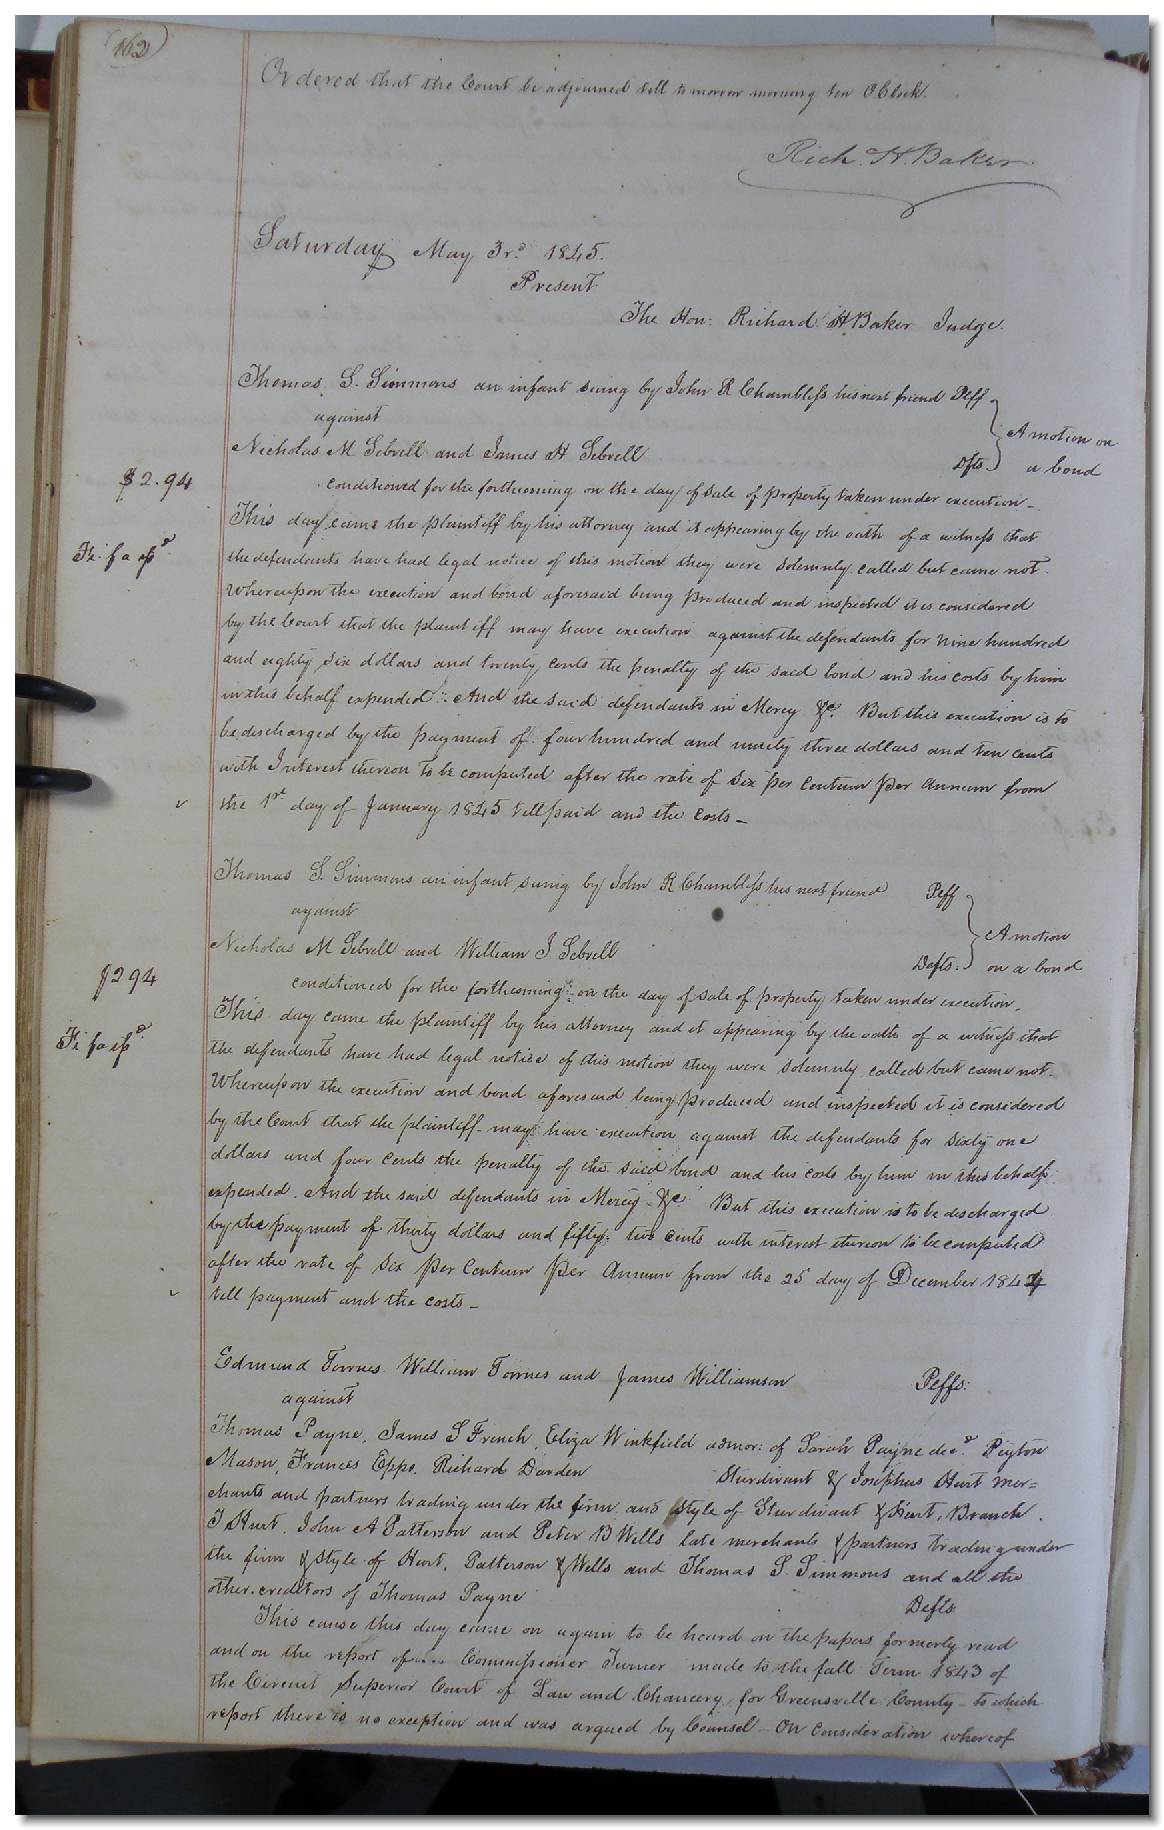 (162)
Ordered that the Court be adjourned till tomorrow morning ten OClock.
Rich. H. Baker
Saturday May 3rd 1845.
Present
The Hon: Richard H Baker Judge.
Thomas S. Simmons an infant suing by John R Chambliss his next friend Plff
against
A motion on
Nicholas M Sebrell and James H Sebrell Dfts. a bond
$2.94
conditioned for the forthcoming on the day of sale of property taken under execution
This day came the plaintiff by his attorney and it appearing by the oath of a witness that
Fi: fa isd
the defendants have had legal notice of this motion they were solemnly called but came not.
Whereupon the execution and bond aforesaid being produced and inspected it is considered
by the Court that the plaintiff may have execution against the defendants for nine hundred
and eighty six dollars and twenty cents the penalty of the said bond and his costs by him
in this behalf expended. And the said defendants in Mercy &c. But this execution is to
be discharged by the payment of four hundred and ninety three dollars and ten cents
with Interest thereon to be computed after the rate of six per centum per annum from
the 1st day of January 1845 till paid and the costs
Thomas S. Simmons an infant suing by John R Chambliss his next friend Plff
against
A motion
Nicholas M Sebrell and William J Sebrell Defts. on a bond
$294
conditioned for the forthcoming on the day of sale of property taken under execution.
This day came the plaintiff by his attorney and it appearing by the oath of a witness that
Fi fa isd
the defendants have had legal notice of this motion they were solemnly called but came not.
Whereupon the execution and bond aforesaid being produced and inspected it is considered
by the Court that the plaintiff may have execution against the defendants for sixty one
dollars and four cents the penalty of the said bond and his costs by him in this behalf
expended. And the said defendants in Mercy &c. But this execution is to be discharged
by the payment of thirty dollars and fifty two cents with interest thereon to be computed
after the rate of six per Centum per Annum from the 25 day of December 1844
till payment and the costs
Edmund William and James Williamson Plffs:
against
Thomas Payne, James S French, Eliza Winkfield admor: of Sarah Payne decd. Peyton
Mason, Frances Epps, Richard Darden Sturdivant & Josephus Hurt mer=
chants and partners trading under the firm and style of Sturdivant & Hurt, Branch
J Hurt, John A Patterson and Peter B Wells late merchants & partners trading under
the firm & style of Hurt, Patterson & Wells and Thomas S. Simmons and all the
other creditors of Thomas Payne Defts
This cause this day came on again to be heard on the papers formerly read
and on the report of Commissioner Turner made to the fall Term 1843 of
the Circuit Superior Court of Law and Chancery for Greensville County to which
report there is no exception and was argued by Counsel On Consideration whereof